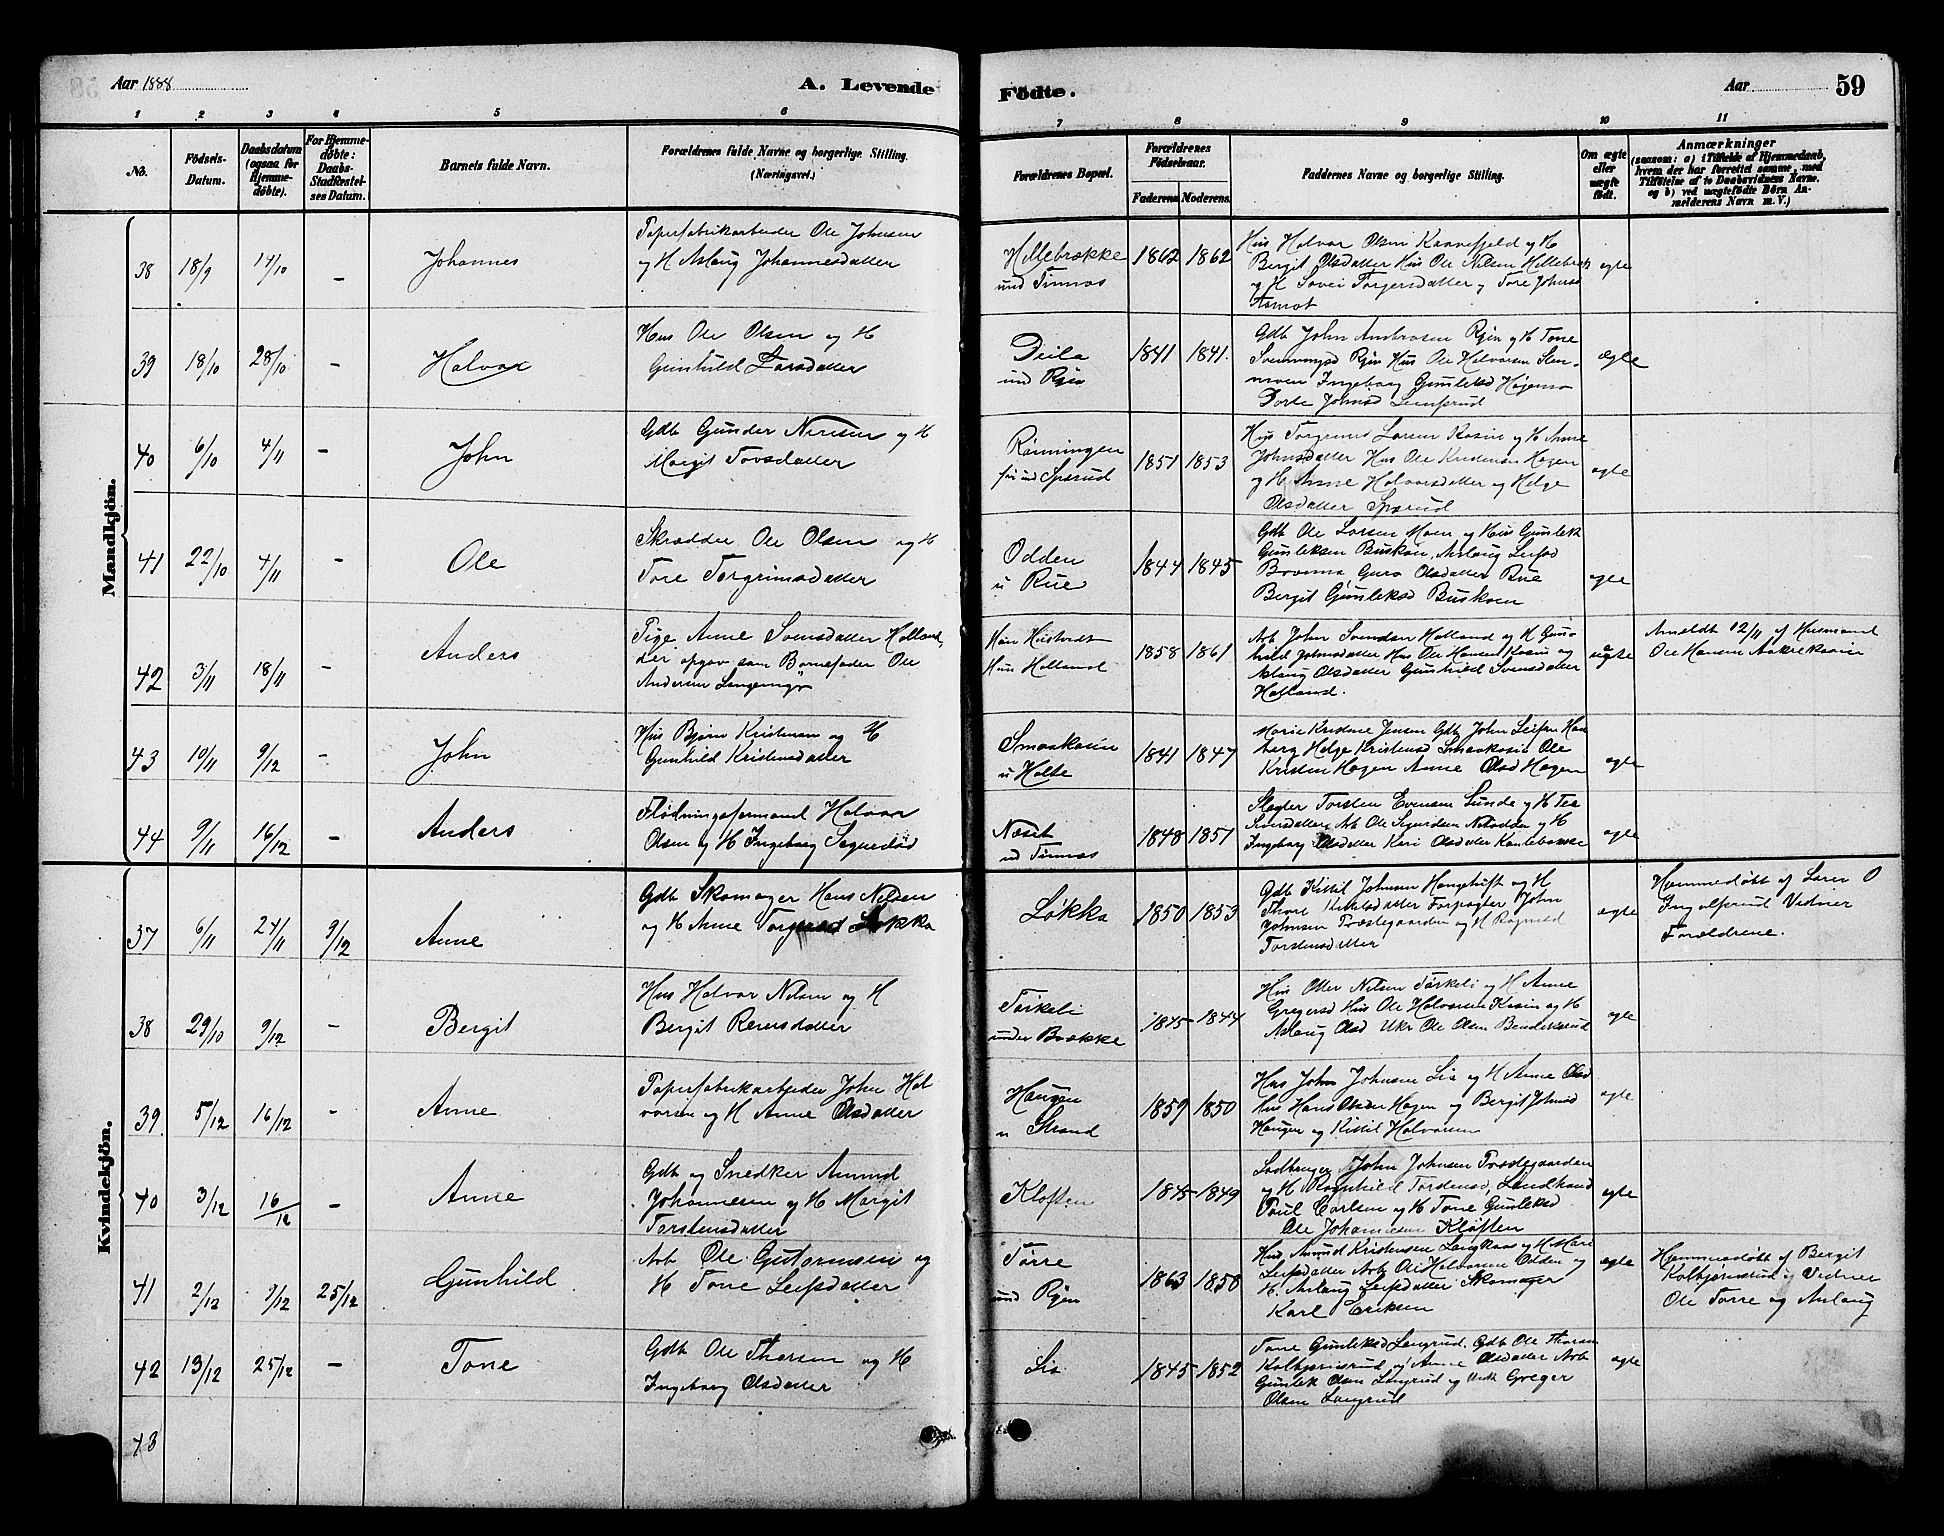 Aar 1888
A. Levende Födte.
Aar
59
1 2 3 4 5 6 7 8 9 10 11
No.
Födsels-Datum.
Daabsdatum (ogsaa for Hjemmedöbte).
For Hjemmedöbte: Daabs-Stadfæstelses Datum.
Barnets fulde Navn.
Forældrenes fulde Navne og borgerlige Stilling. (Næringsvei.)
Forældrenes Bopæl.
Forældrenes Födselsaar.
Faderens Moderens.
Faddernes Navne og borgerlige Stilling.
Om ægte eller uægte födt.
Anmærkninger
(saasom: a) i Tilfælde af Hjemmedaab, hvem der har forrettet samme, med Tilföielse af to Daabsvidners Navne, og b) ved uægtefödte Börn Anmelderens Navn m. V.)
Mandkjön.
38 18/9 14/10 - Johannes
Papirfabrikarbeider Ole Johnsen
og H Aslaug Johannesdatter
Hillebrække
und Tinnes
1862 1862
Hus Halvor Olsen Kaavefjeld og H
Bergit Olsdatter Hus Ole Nilsen Hillebræk
og H Torgersdatter Tore Johnsd
ægte
39 18/10 28/10 - Halvor
Hus Ole Olsen og H
Gunhild Larsdatter
Deila
und Rjen
1841 1841
Gdb John Ambrosen Rjen og H Tone
Svenningsd Rjen Hus Ole Halvorsen
Ingeborg Gunleksd
Dorte Johnsd
ægte
40 6/10 4/11 - John
Gdb Gunder Nilsen og H
Margit Tovsdatter
Rönningen
und Sperud
1851 1853
Hus Torgrims Larsen Kosin og H Anne
Johnsdatter Hus Ole Kristensen Hagen
og H Anne Halvorsdatter og Helge
Olsdatter Sperud
ægte
41 22/10 4/11 - Ole
Skrædder Ole Olsen og H
Tore Torgrimsdatter
Odden
u Rue
1844 1845
Gdb Ole Larsen Moen og Hus Gunlek
Gunleksen Buskoen, Aslaug Leifsd
Guro Olsdatter Rue
Bergit Gunleksd Buskoen
ægte
42 3/11 18/11 - Anders
Pige Anne Svensdatter Holland,
der opgav som Barnefader Ole
Andersen
Hun Holland
1858 1861
Arb John Svendsen Holland og H Gunhild Johnsdatter Hus Ole Hansen Kosin og
Aslaug Olsdatter Gunhild Svensdatter
Holland.
uægte
Anmeldt 12/11 af Husmand
Ole Hansen
43 10/11 9/12 - John
Hus Björn Kristensen og H
Gunhild Kristensdatter
Smaakosin
u Holte
1841 1847
Marie Kristine Jensen Gdb John Leifsen
Helge Kristensd Smaakosin Ole
Kristen Hagen Anne Olsd Hagen
ægte
44 9/11 16/12 - Anders
Flödningsformand Halvor
Olsen og H Ingeborg
Næset
ud Tinnes
1848 1851
Slagter Torsten Evensen Sunde og H
Arb Ole Sigurdsen Notodden og H
Ingeborg Olsdatter Kari Olsdatter
ægte
Kvindekjön.
37 6/11 24/11 9/12 Anne
Gdb Skomager Hans Nilsen
og H Anne Løkka
Løkka
1850 1853
Gdb Kittil Johnsen og H
Thone Kittilsdatter Forpagter John
Johnsen Præstegaarden og H Ragnild
Torstensdatter
ægte
Hjemmedöbt af Lærer O
Ingolfsrud Vidner
Forældrene.
38 29/10 9/12 - Bergit
Hus Halvor Nilsen og H
Bergit Reiersdatter
Torkeli
under Bække
1845 1844
Hus Otter Nilsen Torkeli og H Anne
Gregersd Hus Ole Halvorsen Kosin og H
Aslaug Olsd Ukr Ole Olsen
ægte
39 5/12 16/12 - Anne
Papirfabrikarbeider John Halvorsen og H Anne Olsdatter
Haugen
u Strand
1859 1850
Hus John Johnsen Lia og H Anne Olsd
Hus Hans Olsen Hagen og Bergit Johnsd
Haugen og Kittil Halvorsen
ægte
40 3/12 16/12 - Anne
Gdb og Snedker Amund
Johannesen og H Margit
Torstensdatter
Kløften
1845 1849
John Johnsen Præstegaarden
og H Ragnhild Torstensd, Landhand
Poul Carlsen og H Tone Gunleksd
Ole Johannesen Kløften
ægte
41 2/12 9/12 25/12 Gunhild
Arb Ole Gutormsen og
H Tone Leifsdatter
Torre
und Rjen
1863 1858
Hus Amund Kristensen Langkaas og H Mari
Leifsdatter Arb Ole Halvorsen Odden og
H. Aslaug Leifsdatter Skomager
Karl Eriksen
ægte
Hjemmedöbt af Bergit
Kolbjørnsrud Vidner
Ole Torre og Aslaug
42 13/12 25/12 - Tone
Gdb Ole Thorsen og H
Ingeborg Olsdatter
Lia
1845 1852
Tone Gunleksd Langrud. Gdb Ole Thorsen
Kolbjørnsrud og Anne Olsdatter Arb
Gunlek Olsen Langrud og Greger
Olsen Langrud
ægte
43